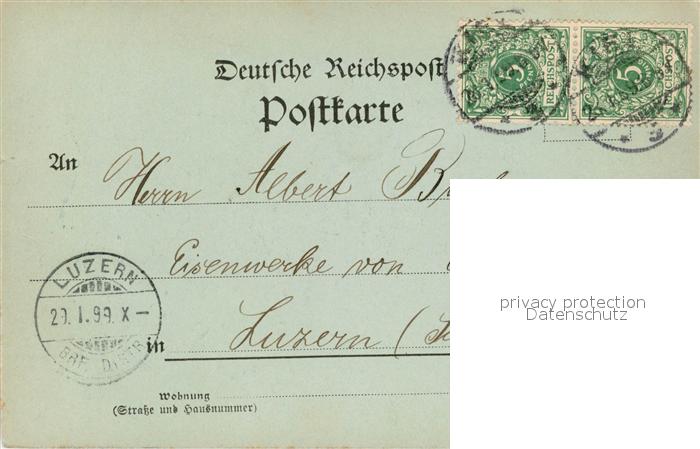 Deutsche Reichspost
Postkarte
5
REICHSPOST
5
REICHSPOST
An Herrn Albert
Eisenwerke von
LUZERN
29. I. 99. X –
BRF. DISTR.
in Luzern
Wohnung
(Straße und Hausnummer)
privacy protection
Datenschutz